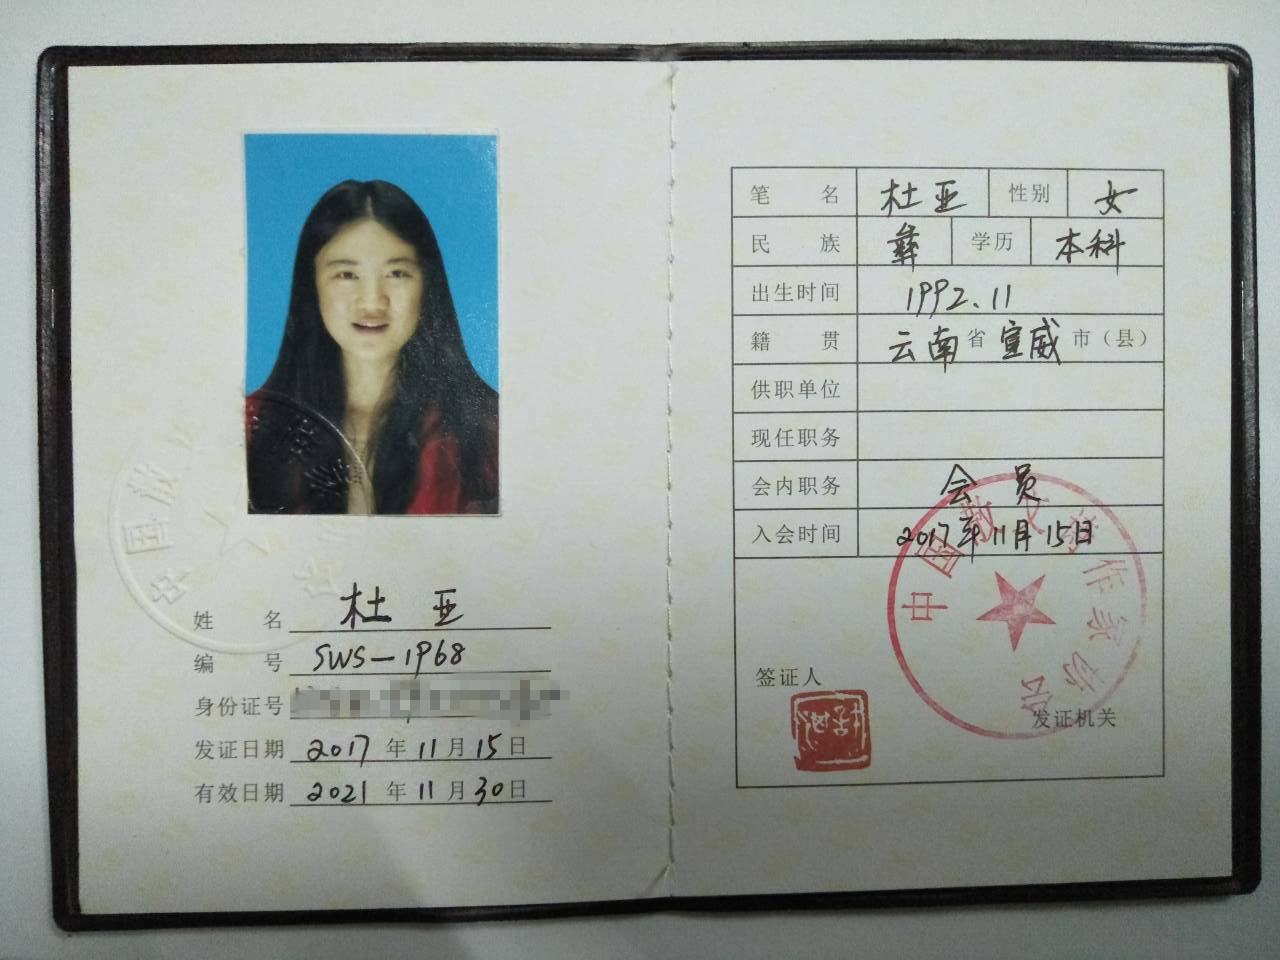 姓 名 杜 亚
编 号 SWS-1968
身份证号
发证日期 2017 年 11 月 15 日
有效日期 2021 年 11 月 30 日
笔 名 杜亚 性别 女
民 族 彝 学历 本科
出生时间 1992.11
籍 贯 云南 省 宣威 市(县)
供职单位
现任职务
会内职务 会 员
入会时间 2017年11月15日
中国散文诗作家协会
签证人
发证机关